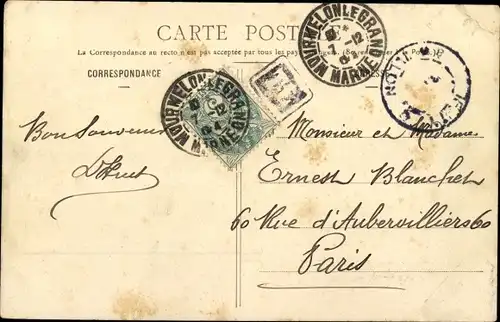 CARTE POSTALE
La Correspondance au recto n'est pas acceptée par tous les pays
CORRESPONDANCE
MOURMELON LE GRAND
MARNE
7 12
MOURMELON LE GRAND
MARNE
Bon Souvenir
Monsieur et Madame
Ernest Blanchet
60 Rue d'Aubervilliers 60
Paris